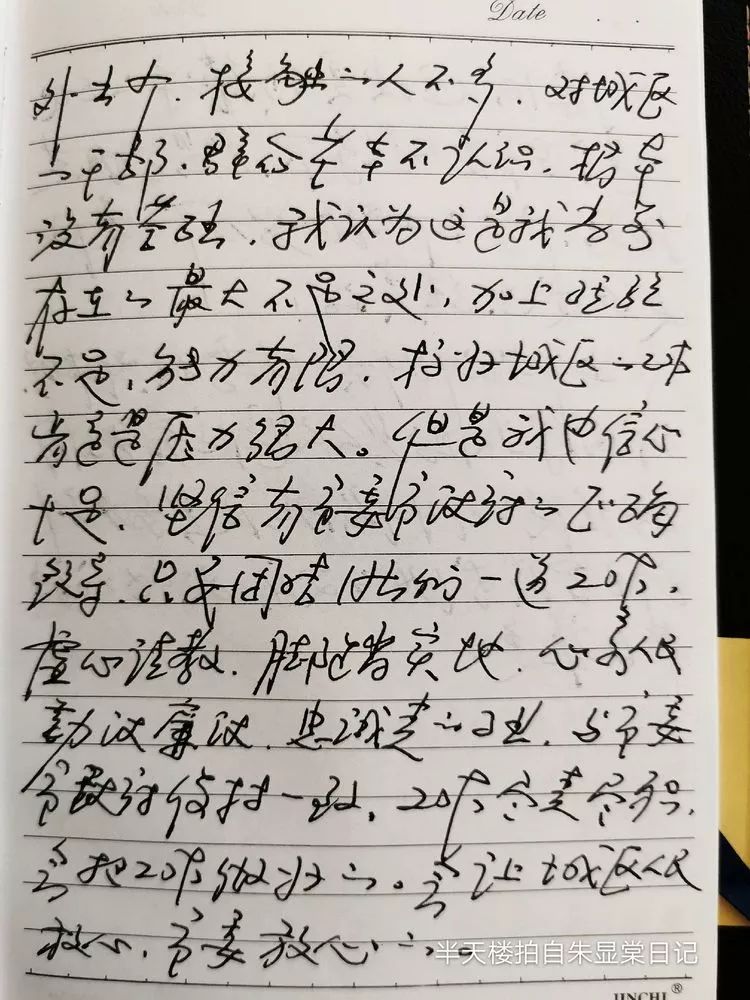 Date
外去少，接触的人不多，对城区
的干部、群众基本不认识，根本
没有基础，我认为这是我当前
存在的最大不足之处，加上经验
不足，能力有限，搞好城区的工作
肯定是压力很大。但是我也信心
十足，坚信有市委市政府的正确
领导，只要团结一道工作，
虚心请教，脚踏实地，心系人民
勤政廉政，忠诚，与市委
市政府保持一致，工作
会把工作做好的。会让城区人民
放心，市委放心的。
半天楼拍自朱显棠日记
JINCHI®